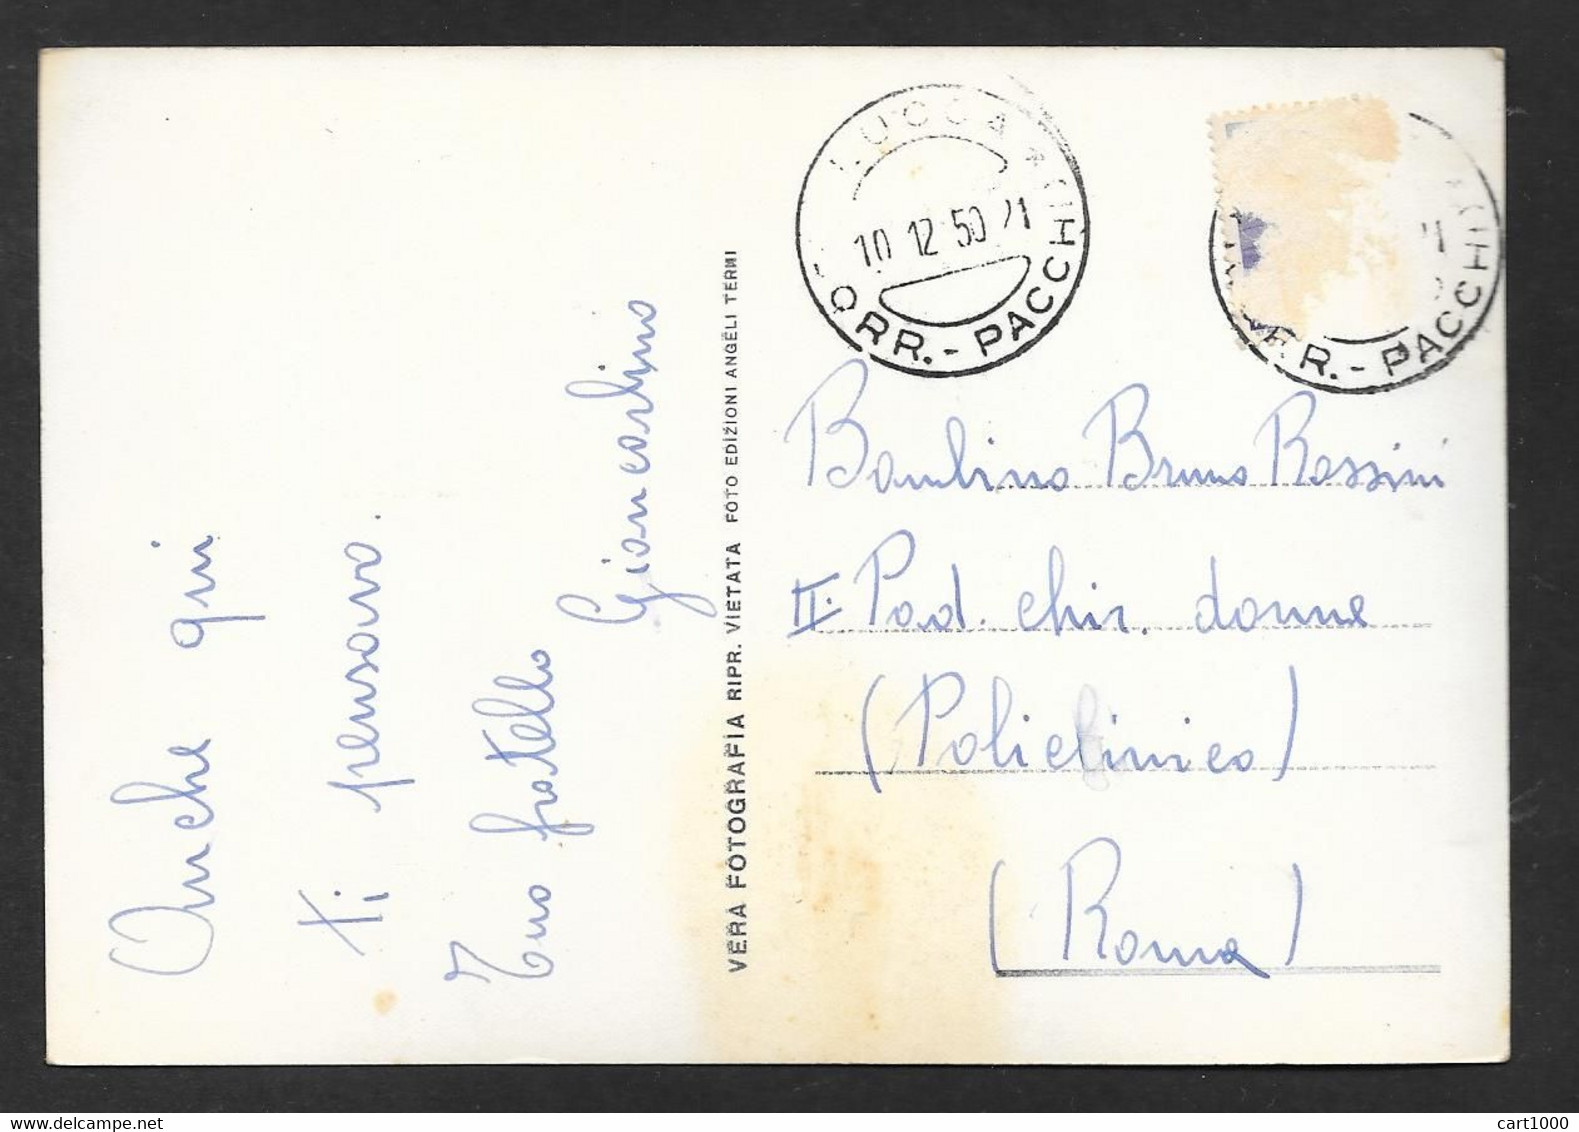 Anche qui
ti pensavo.
Tuo fratello
Giancarlino
VERA FOTOGRAFIA RIPR. VIETATA FOTO EDIZIONI ANGELI TERNI
LUCCA
10 12 50 21
CORR.-PACCHI
RR.-PACCHI
Bambino Bruno Rossini
II. Pad. chir. donne
(Policlinico)
(Roma)
cart1000